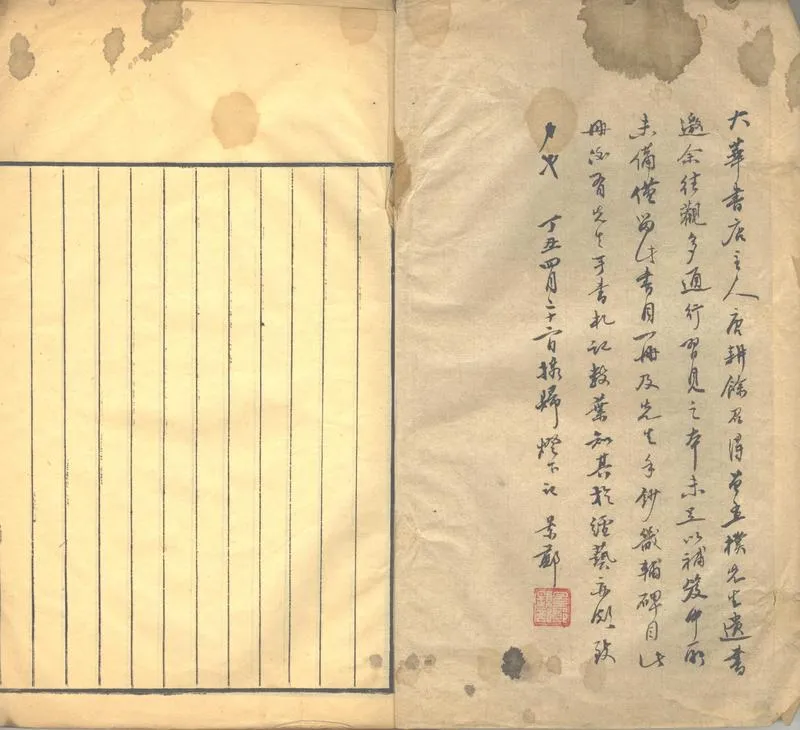 大華書店主人唐耕餘君得曾孟樸先生遺書
邀余往觀多通行習見之本未足以補笈中所
未備僅留此書目一冊及先生手鈔畿輔碑目此
冊內有先生手書札記數葉知其於經藝亦頗致
力也 丁丑四月二十六日攜歸燈下記 景鄭